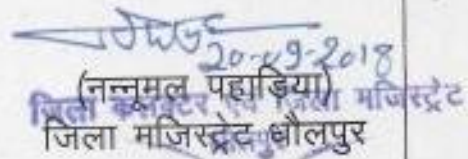 20-09-2018
(नन्नूमल पहाडिया)
जिला कलक्टर एवं जिला मजिस्ट्रेट
जिला मजिस्ट्रेट धौलपुर